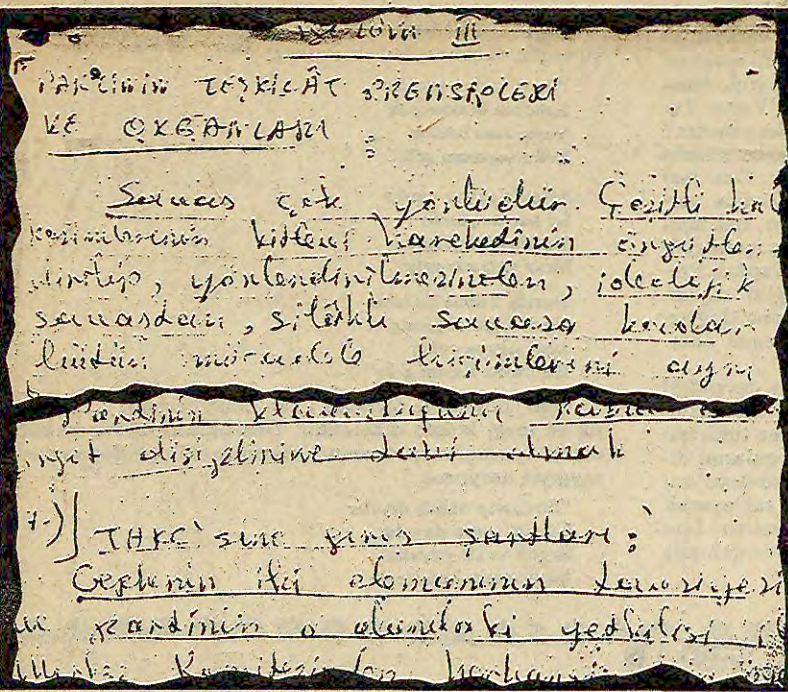 Bölüm III
PARTİNİN TEŞKİLÂT PRENSİPLERİ
VE ORGANLARI :
Savaş çok yönlüdür. Çeşitli hal
kesimlerinin kitlevi hareketinin örgütlen
dirilip, yönlendirilmesinden, ideolojik
savaşdan, silahlı savaşa kadar
bütün mücadele biçimlerini aynı
Partinin
disiplinine tabi olmak
THKC'sine giriş şartları :
Cephenin iki elemanının tavsiyesi
ve partinin o alandaki yetkilisi
Komitesinden herhangi